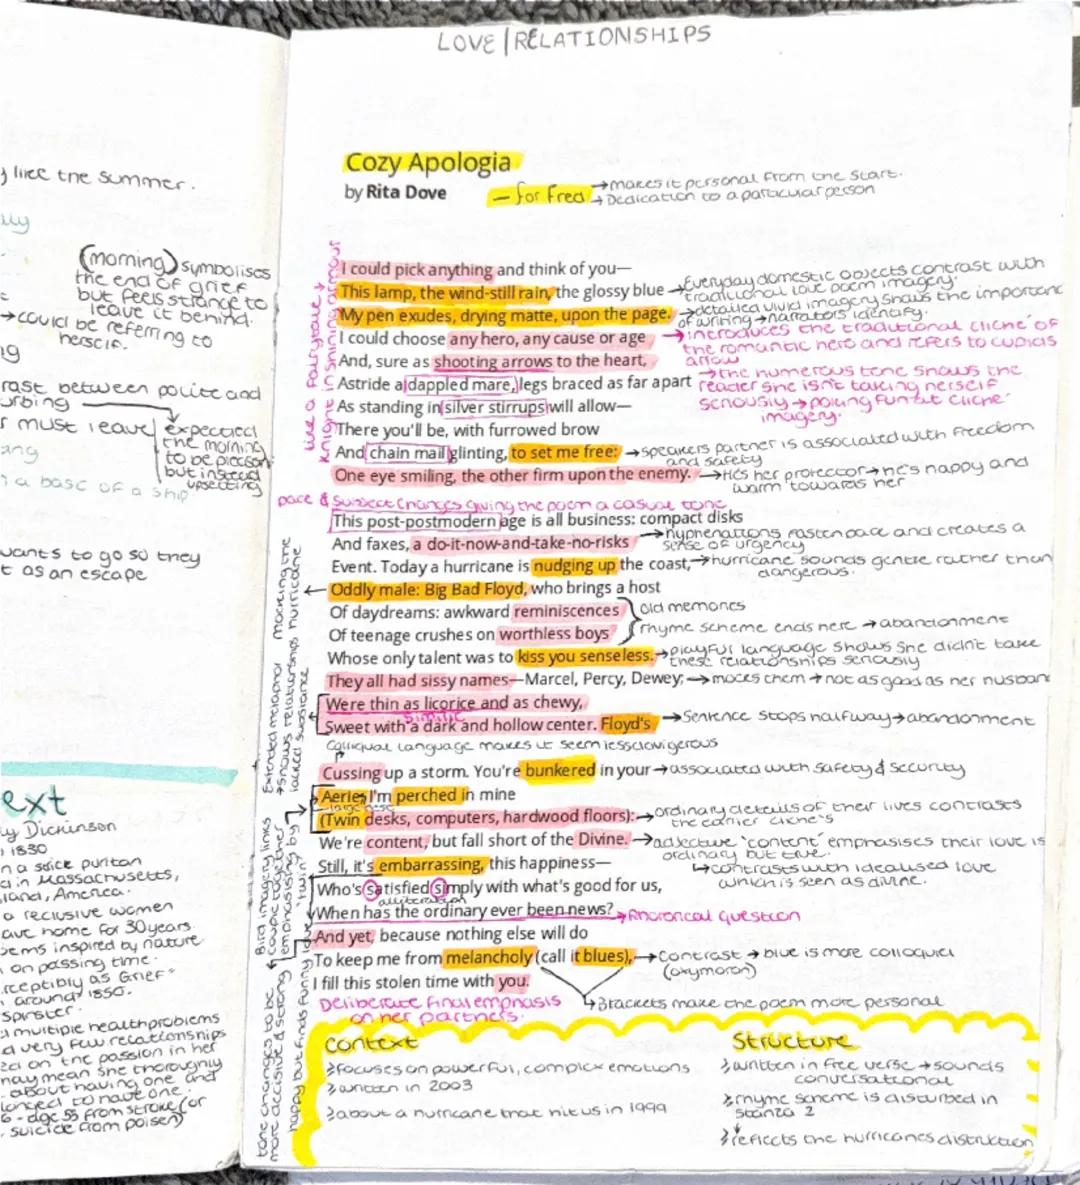 LOVE/RELATIONSHIPS
Cozy Apologia
by Rita Dove
– for Fred
→ makes it personal from the start.
→ Dedication to a particular person
I could pick anything and think of you—
This lamp, the wind-still rain, the glossy blue
My pen exudes, drying matte, upon the page.
I could choose any hero, any cause or age
And, sure as shooting arrows to the heart,
Astride a dappled mare, legs braced as far apart
As standing in silver stirrups will allow—
There you'll be, with furrowed brow
And chain mail glinting, to set me free:
One eye smiling, the other firm upon the enemy.
like a fairytale →
Knight in shining armour
→ Everyday domestic objects contrast with
traditional love poem imagery.
→ detailed vivid imagery shows the importance
of writing → narrators identify.
→ introduces the traditional cliche of
the romantic hero and refers to cupids
arrow
→ the humerous tone shows the
reader she isn't taking herself
seriously → poking fun at cliche
imagery.
→ speakers partner is associated with freedom
and safety
→ He's her protector → he's happy and
warm towards her
pace & subject changes giving the poem a casual tone
This post-postmodern age is all business: compact disks
And faxes, a do-it-now-and-take-no-risks
Event. Today a hurricane is nudging up the coast,
Oddly male: Big Bad Floyd, who brings a host
Of daydreams: awkward reminiscences
Of teenage crushes on worthless boys
Whose only talent was to kiss you senseless.
They all had sissy names—Marcel, Percy, Dewey;
Were thin as licorice and as chewy,
Simile
Sweet with a dark and hollow center. Floyd's
→ hyphenations fasten pace and creates a
sense of urgency
→ hurricane sounds gentle rather than
dangerous.
old memories
rhyme scheme ends here → abandonment
→ playful language shows she didn't take
these relationships seriously
→ mocks them → not as good as her husban
→ Sentence stops halfway → abandonment
mocking the
hurricane
Extended metaphor
→ shows relationships
lacked substance
Colliqual language makes it seem less davigerous
Cussing up a storm. You're bunkered in your
Aerie, I'm perched in mine
(Twin desks, computers, hardwood floors):
We're content, but fall short of the Divine.
Still, it's embarrassing, this happiness—
Who's satisfied simply with what's good for us,
alliteration
When has the ordinary ever been news?
And yet, because nothing else will do
To keep me from melancholy (call it blues),
I fill this stolen time with you.
→ associated with safety & security
→ ordinary details of their lives contrasts
the earlier cliche's
→ adjective 'content' emphasises their love is
ordinary but true.
↳ contrasts with idealised love
which is seen as divine.
→ Rhetorical question
→ contrast → blue is more colloquial
(oxymoron)
↳ Brackets make the poem more personal
Deliberate final emphasis
on her partners.
Bird imagery links
couple together
emphasising by
'twin'
tone changes to be
more decisive & strong
happy but finds funny
Context
→ focuses on powerful, complex emotions
→ written in 2003
→ about a hurricane that hit us in 1999
Structure
→ written in free verse → sounds
conversational
→ rhyme scheme is disturbed in
stanza 2
→ reflects the hurricanes distruction
like the summer.
(morning) symbolises
the end of grief
but feels strange to
leave it behind.
→ could be referring to
herself.
rast between polite and
urbing
must leave
expected
the morning
to be pleasan
but instead
upsetting
a base of a ship
wants to go so they
t as an escape
ext
y Dickinson
1830
n a strict puritan
d in Massachusetts,
land, America.
a reclusive women
ave home for 30 years.
oems inspired by nature
on passing time.
rceptibly as Grief"
around 1850.
spinster.
multiple health problems
d very few relationships
ed on the passion in her
may mean she thoroughly
about having one and
longed to have one.
6 - age 55 from stroke (or
suicide from poisen)